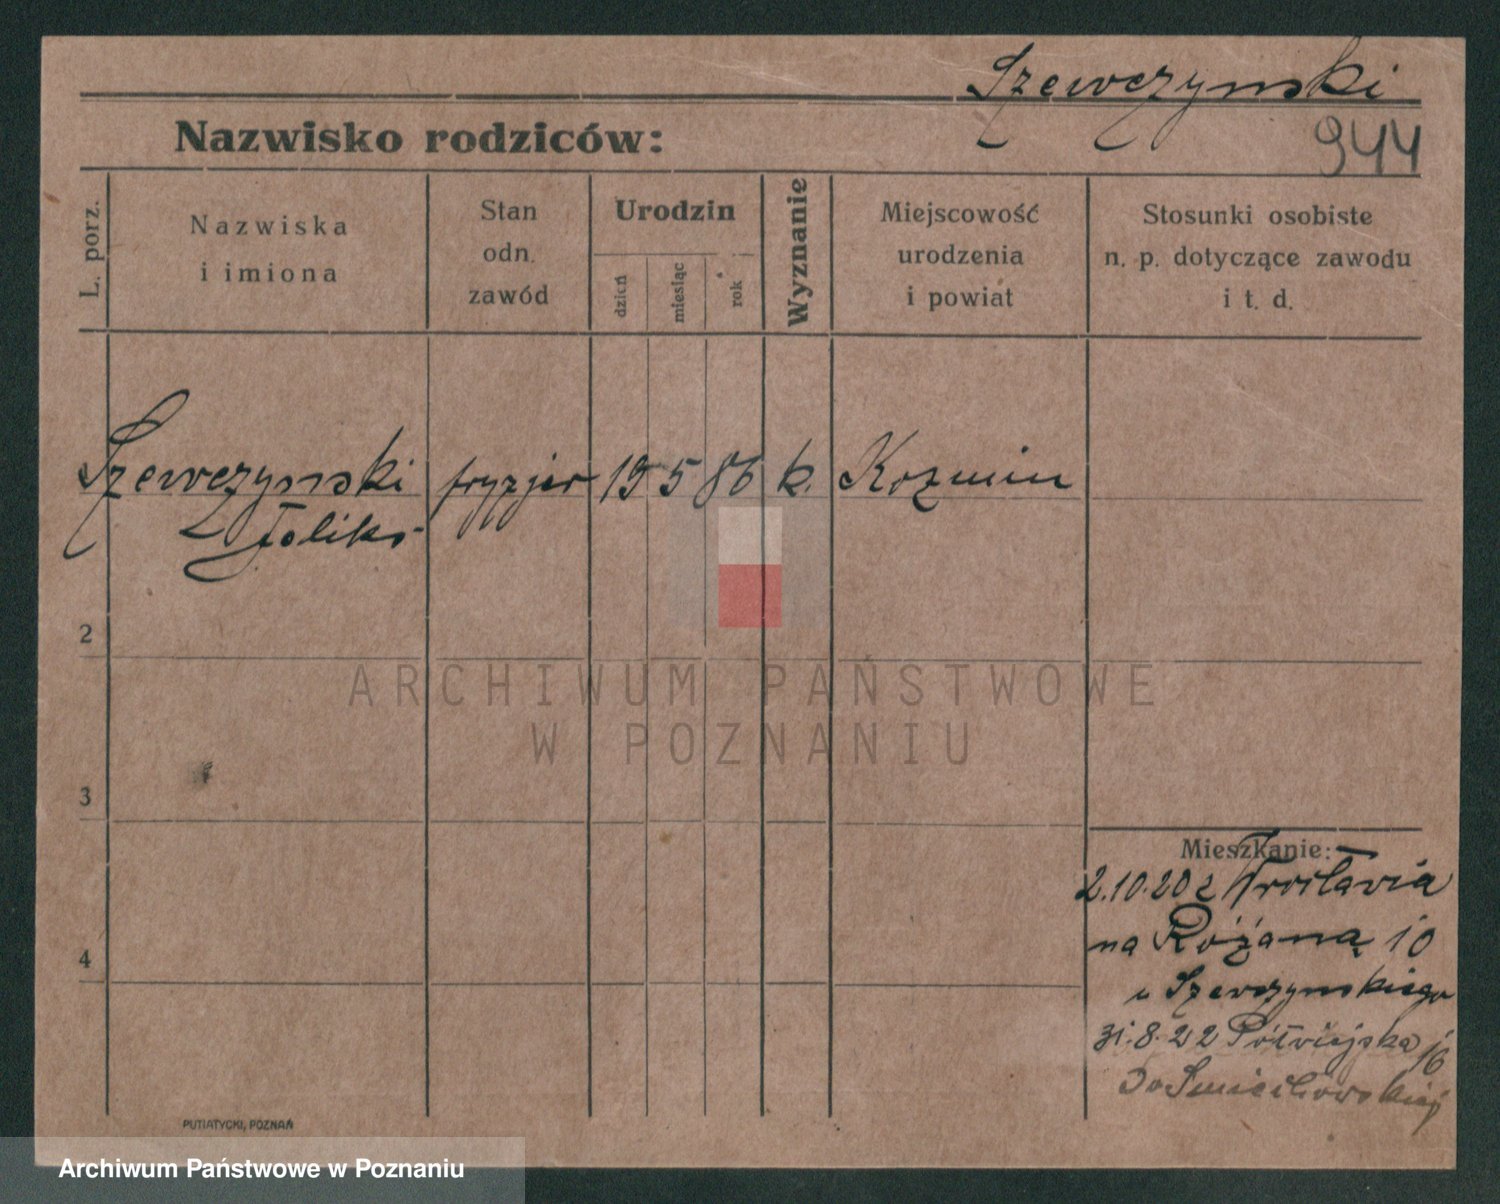 Szewczynski
Nazwisko rodziców:
944
L. porz.
Nazwiska
i imiona
Stan
odn.
zawód
Urodzin
dzień
miesiąc
rok
Wyznanie
Miejscowość
urodzenia
i powiat
Stosunki osobiste
n. p. dotyczące zawodu
i t. d.
Szewczynski fryzjer 15 5 86 k. Kozmin
Foliks
2
3
4
Mieszkanie:
2.10.20 z Wrocławia
na Różaną 10
u Szewczynskiego
31.8.22 Półwiejska 16
Do
PUTIATYCKI, POZNAŃ
ARCHIWUM PAŃSTWOWE
W POZNANIU
Archiwum Państwowe w Poznaniu